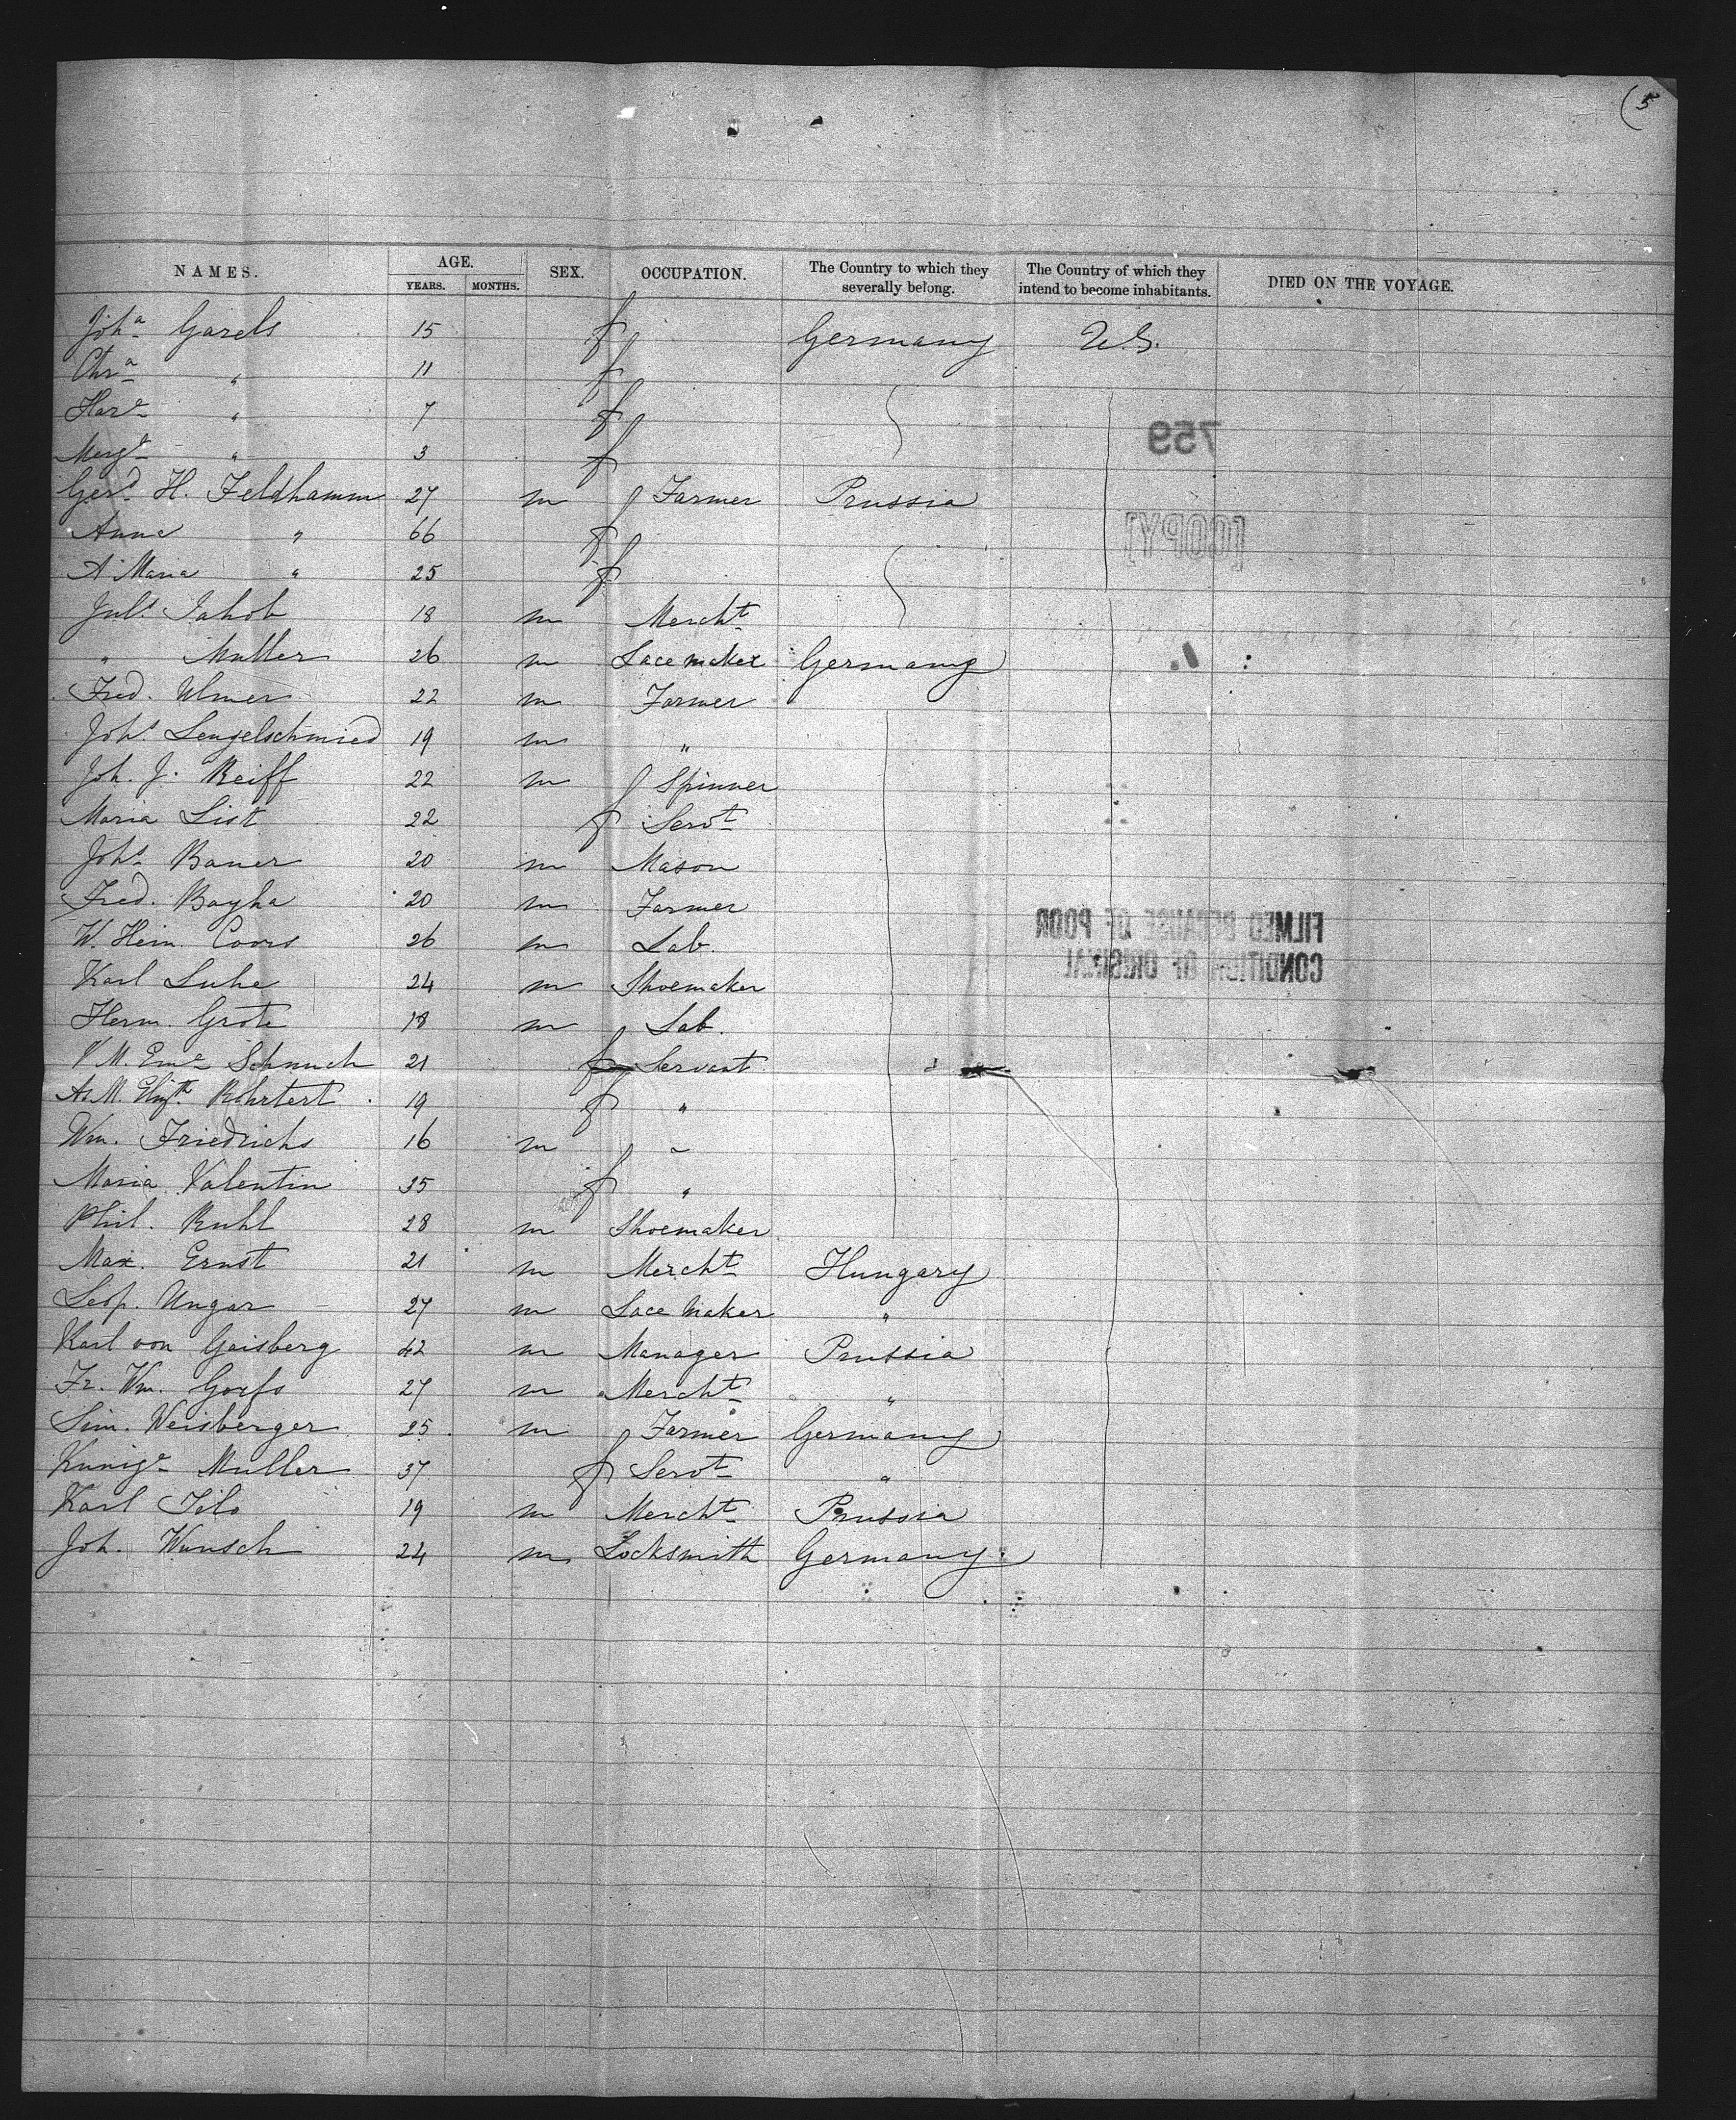 (5
NAMES. AGE. YEARS. MONTHS. SEX. OCCUPATION. The Country to which they severally belong. The Country of which they intend to become inhabitants. DIED ON THE VOYAGE.
Joha Garels 15 f Germany U.S.
Chra " 11 f
Hare " 7 f
759
Marge " 3 f
Gerd H. Feldhamm 27 m Farmer Prussia
[COPY]
Anna " 66 f
A Maria " 25 f
Juls Jakob 18 m Mercht
" Muller 26 m Lace maker Germany
Fred. Ulmer 22 m Farmer
Johs Lengelschmied 19 m "
Joh. J. Reiff 22 m Spinner
Maria List 22 f Servt
Johs Bauer 20 m Mason
Fred. Bayha 20 m Farmer
FILMED BECAUSE OF POOR
W. Hein. Coors 26 m Lab.
CONDITION OF ORIGINAL
Karl Luhe 24 m Shoemaker
Herm. Grote 18 m Lab.
M. Eme Schnuch 21 f Servant
A. M. Elizth Rohrtert 19 f "
Wm. Friedrichs 16 m "
Maria Valentin 35 f "
Phil. Ruhl 28 m Shoemaker
Max. Ernst 21 m Mercht Hungary
Leop. Ungar 27 m Lace Maker "
Karl von Gaisberg 42 m Manager Prussia
Fr. Wm. 27 m Mercht "
Sim. Weisberger 25 m Farmer Germany
Kunige Muller 37 f Servt "
Karl 19 m Mercht Prussia
Joh. Wunsch 24 m Locksmith Germany